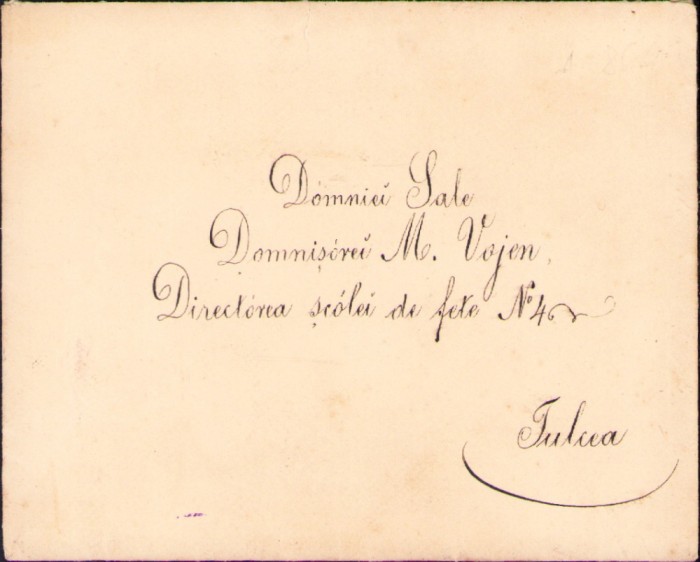 Domniei Sale
Domnișórei M. Vojen
Directórea șcólei de fete No 4
Tulcea